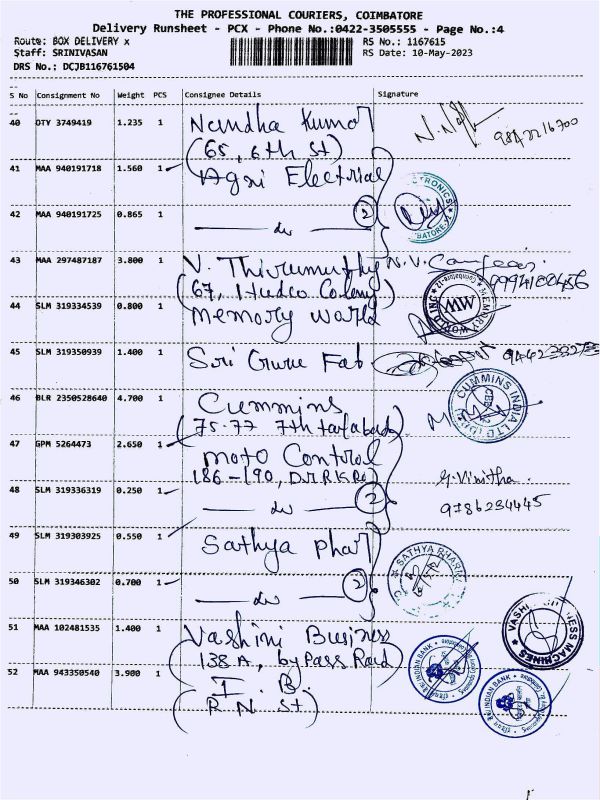 THE PROFESSIONAL COURIERS, COIMBATORE
Delivery Runsheet - PCX - Phone No.:0422-3505555 - Page No.:4
Route: BOX DELIVERY x
RS No.: 1167615
Staff: SRINIVASAN
RS Date: 10-May-2023
DRS No.: DCJB116761504
S No Consignment No Weight PCS Consignee Details Signature
40 OTY 3749419 1.235 1 Nandha Kumar
(65, 6th St)
41 MAA 940191718 1.560 1 Agni Electrical
42 MAA 940191725 0.865 1 do 2
43 MAA 297487187 3.800 1 V. Thirumurthy
(67, Hudco Colony)
44 SLM 319334539 0.800 1 Memory World
MEMORY WORLD
45 SLM 319350939 1.400 1 Sri Guru Fab
46 BLR 2350528640 4.700 1 Cummins
(75-77 7th
CUMMINS INDIA LTD
47 GPM 5264473 2.650 1 Moto Control
186-190,
48 SLM 319336319 0.250 1 do 2
G. Vinitha.
9786234445
49 SLM 319303925 0.550 1 Sathya phar
SATHYA PHARMA
50 SLM 319346302 0.700 1 do 2
51 MAA 102481535 1.400 1 Vashini Business
(138 A, by Pass Road)
VASHINI BUSINESS MACHINES
52 MAA 943350540 3.900 1 I. B.
(R. N. St)
INDIAN BANK
INDIAN BANK